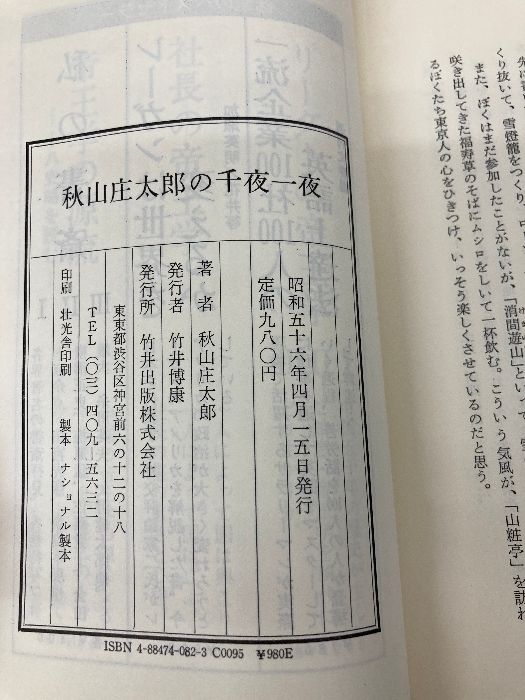 先に
くり抜いて、雪燈籠をつくり、
また、ぼくはまだ参加したことがないが、「消間遊山」といって、雪
咲き出してきた福寿草のそばにムシロをしいて一杯飲む。こういう気風が、「山粧亭」を訪れ
るぼくたち東京人の心をひきつけ、いっそう楽しくさせているのだと思う。
秋山庄太郎の千夜一夜
昭和五十六年四月一五日発行
定価九八〇円
著者 秋山庄太郎
発行者 竹井博康
発行所 竹井出版株式会社
東東都渋谷区神宮前六の十二の十八
TEL(〇三)四〇九―五六三二
印刷 壮光舎印刷 製本 ナショナル製本
ISBN 4-88474-082-3 C0095 ¥980E